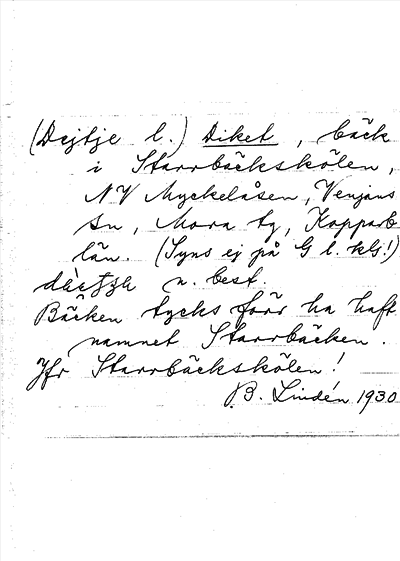 (Dejtje l.) Diket, bäck
i Starrbäckskölen,
NV Myckelåsen, Venjans
sn, Mora tg, Kopparb
län. (Syns ej på G l. kls!)
n. best.
Bäcken tycks förr ha haft
namnet Starrbäcken.
Jfr Starrbäckskölen!
B. Lindén 1930